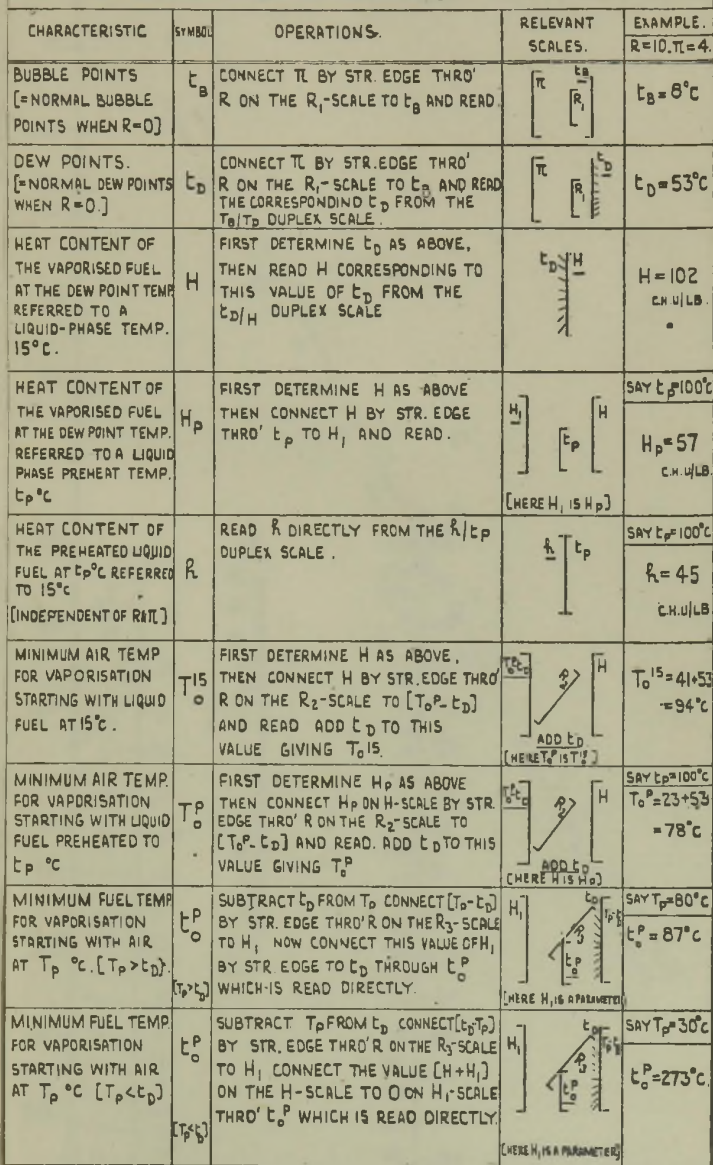 CHARACTERISTIC SYMBOL OPERATIONS. RELEVANT SCALES. EXAMPLE. R=10.π=4.
BUBBLE POINTS
[=NORMAL BUBBLE
POINTS WHEN R=0]
t_B
CONNECT π BY STR. EDGE THRO'
R ON THE R₁-SCALE TO t_B AND READ.
π R₁ t_B
t_B=8°C
DEW POINTS.
[=NORMAL DEW POINTS
WHEN R=0.]
t_D
CONNECT π BY STR. EDGE THRO'
R ON THE R₁-SCALE TO t_B AND READ
THE CORRESPONDIND t_D FROM THE
T_B/T_D DUPLEX SCALE.
π R₁ t_D
t_D=53°C
HEAT CONTENT OF
THE VAPORISED FUEL
AT THE DEW POINT TEMP
REFERRED TO A
LIQUID-PHASE TEMP.
15°C.
H
FIRST DETERMINE t_D AS ABOVE,
THEN READ H CORRESPONDING TO
THIS VALUE OF t_D FROM THE
t_D/H DUPLEX SCALE
t_D H
H=102
C.H.U/LB.
HEAT CONTENT OF
THE VAPORISED FUEL
AT THE DEW POINT TEMP.
REFERRED TO A LIQUID
PHASE PREHEAT TEMP.
t_P °C
H_P
FIRST DETERMINE H AS ABOVE
THEN CONNECT H BY STR. EDGE
THRO' t_P TO H₁ AND READ.
H₁ t_P H
[HERE H₁ IS H_P]
SAY t_P=100°C
H_P=57
C.H.U/LB.
HEAT CONTENT OF
THE PREHEATED LIQUID
FUEL AT t_P°C REFERRED
TO 15°C
[INDEPENDENT OF R&π]
h
READ h DIRECTLY FROM THE h/t_P
DUPLEX SCALE.
h t_P
SAY t_P=100°C
h=45
C.H.U/LB
MINIMUM AIR TEMP
FOR VAPORISATION
STARTING WITH LIQUID
FUEL AT 15°C.
T₀¹⁵
FIRST DETERMINE H AS ABOVE,
THEN CONNECT H BY STR. EDGE THRO'
R ON THE R₂-SCALE TO [T₀ᴾ-t_D]
AND READ ADD t_D TO THIS
VALUE GIVING T₀¹⁵.
T₀ᴾ-t_D R₂ H
ADD t_D
[HERE T₀ᴾ IS T₀¹⁵]
T₀¹⁵=41+53
=94°C
MINIMUM AIR TEMP.
FOR VAPORISATION
STARTING WITH LIQUID
FUEL PREHEATED TO
t_P °C
T₀ᴾ
FIRST DETERMINE H_P AS ABOVE
THEN CONNECT H_P ON H-SCALE BY STR.
EDGE THRO' R ON THE R₂-SCALE TO
[T₀ᴾ-t_D] AND READ. ADD t_D TO THIS
VALUE GIVING T₀ᴾ
T₀ᴾ-t_D R₂ H
ADD t_D
[HERE H IS H_P]
SAY t_P=100°C
T₀ᴾ=23+53
=78°C
MINIMUM FUEL TEMP
FOR VAPORISATION
STARTING WITH AIR
AT T_P °C.[T_P>t_D].
t₀ᴾ
[T_P>t_D]
SUBTRACT t_D FROM T_P CONNECT [T_P-t_D]
BY STR. EDGE THRO' R ON THE R₃-SCALE
TO H₁ NOW CONNECT THIS VALUE OF H₁
BY STR EDGE TO t_D THROUGH t₀ᴾ
WHICH-IS READ DIRECTLY.
H₁ t_D R₃ t₀ᴾ T_P-t_D
[HERE H₁ IS A PARAMETER]
SAY T_P=80°C
t₀ᴾ=87°C
MINIMUM FUEL TEMP.
FOR VAPORISATION
STARTING WITH AIR
AT T_P °C [T_P<t_D]
t₀ᴾ
[T_P<t_D]
SUBTRACT T_P FROM t_D CONNECT [t_D-T_P]
BY STR. EDGE THRO' R ON THE R₃-SCALE
TO H₁ CONNECT THE VALUE [H+H₁]
ON THE H-SCALE TO 0 ON H₁-SCALE
THRO' t₀ᴾ WHICH IS READ DIRECTLY.
H₁ t_D R₃ t₀ᴾ
[HERE H₁ IS A PARAMETER]
SAY T_P=30°C
t₀ᴾ=273°C